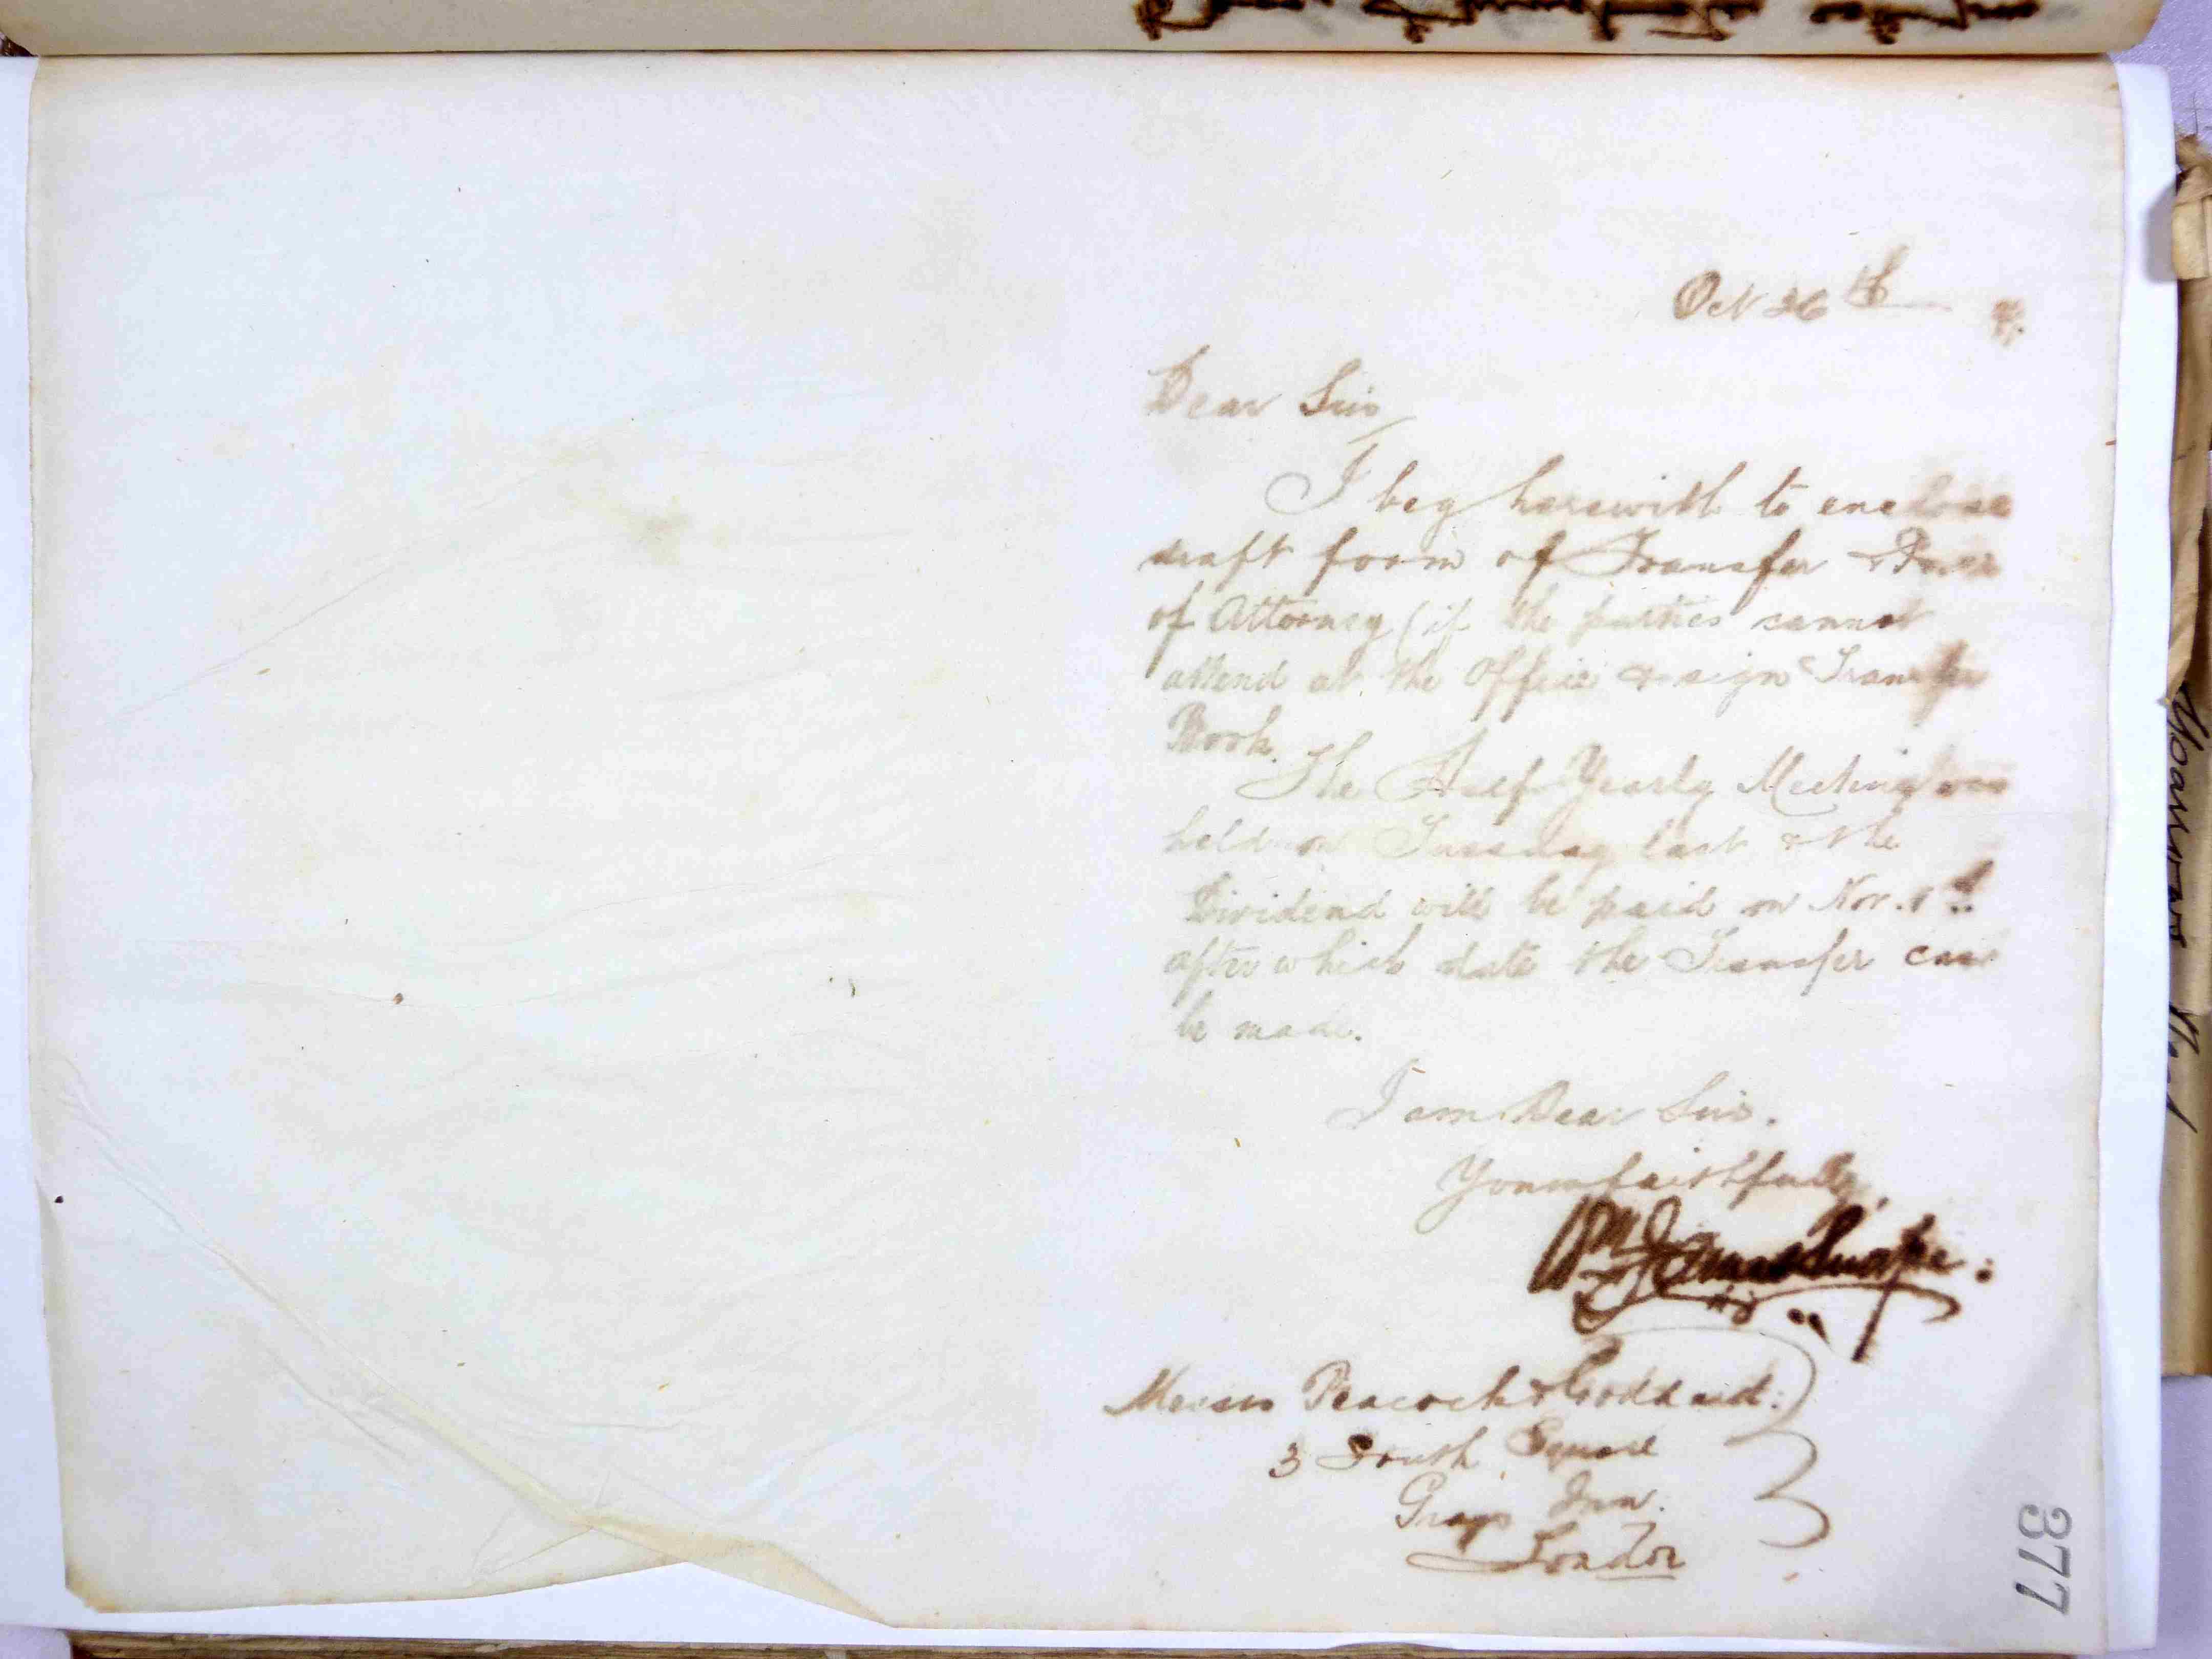 Oct 26th
Dear Sirs
I beg herewith to enclose
draft form of Transfer & Power
of Attorney (if the parties cannot
attend at the Office & sign Transfer
Book.
The Half Yearly Meeting was
held on Tuesday last & the
Dividend will be paid on Nov. 1st
after which date the Transfer can
be made.
I am Dear Sirs.
Yours faithfully,
Wm
Messrs Peacock & Goddard:
3 South Square
Grays Inn.
London
377